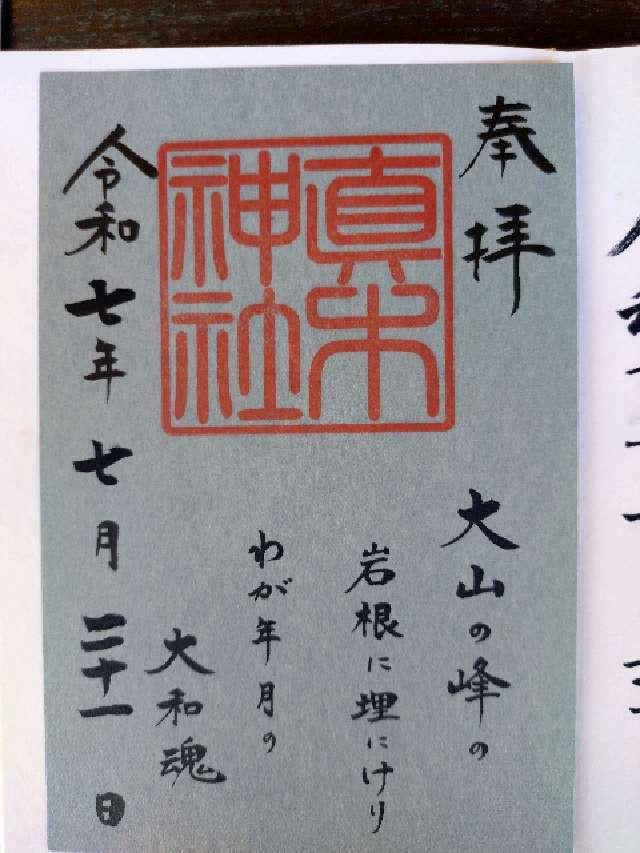 奉拝
眞木
神社
大山の峰の
岩根に埋にけり
わが年月の
大和魂
令和七年七月二十一日